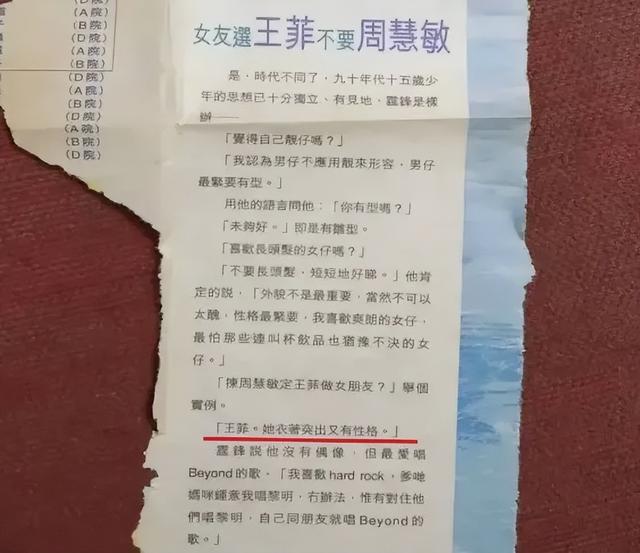 (A院)
(B院)
(D院)
(A院)
(B院)
(D院)
(A院)
(B院)
(D院)
(A院)
(B院)
(D院)
女友選王菲不要周慧敏
是，時代不同了，九十年代十五歲少
年的思想已十分獨立、有見地，霆鋒是樣
辦——
「覺得自己靚仔嗎？」
「我認為男仔不應用靚來形容，男仔
最緊要有型。」
用他的語言問他：「你有型嗎？」
「未夠好。」即是有雛型。
「喜歡長頭髮的女仔嗎？」
「不要長頭髮，短短地好睇。」他肯
定的說，「外貌不是最重要，當然不可以
太醜，性格最緊要，我喜歡爽朗的女仔，
最怕那些連叫杯飲品也猶豫不決的女
仔。」
「揀周慧敏定王菲做女朋友？」舉個
實例。
「王菲。她衣著突出又有性格。」
霆鋒說他沒有偶像，但最愛唱
Beyond的歌。「我喜歡hard rock，爹哋
媽咪鍾意我唱黎明，冇辦法，惟有對住他
們唱黎明，自己同朋友就唱Beyond的
歌。」